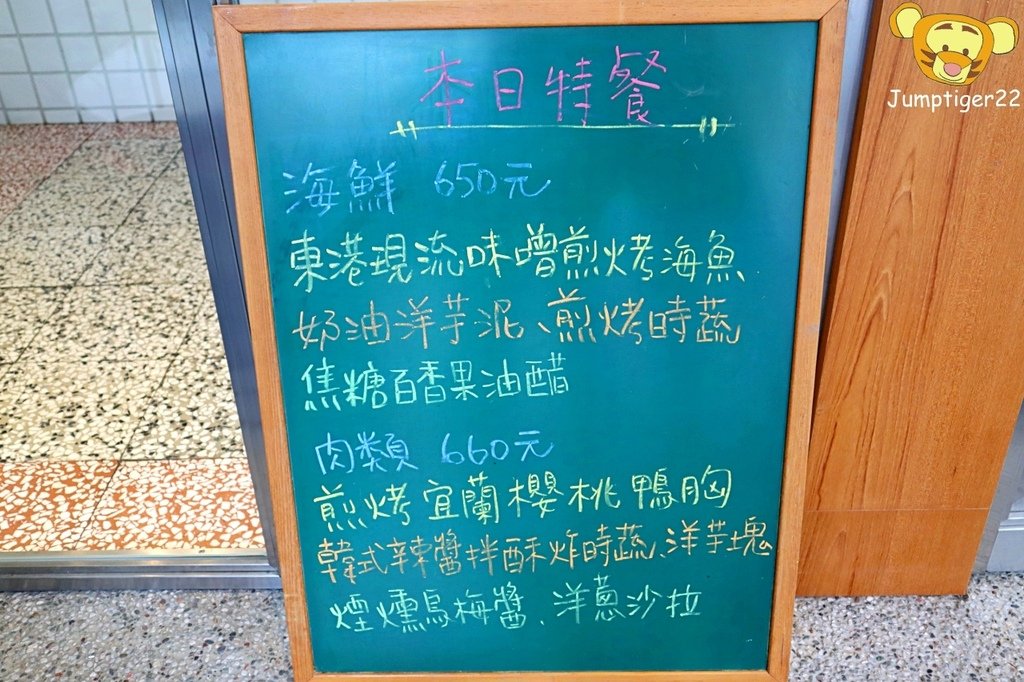 本日特餐
海鮮 650元
東港現流味噌煎烤海魚
奶油洋芋泥、煎烤時蔬
焦糖百香果油醋
肉類 660元
煎烤宜蘭櫻桃鴨胸
韓式辣醬拌酥炸時蔬、洋芋塊
煙燻烏梅醬、洋蔥沙拉
Jumptiger22